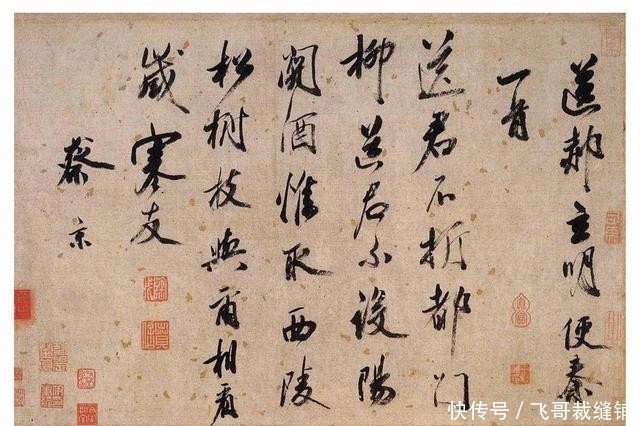 送郝玄明使秦
一首
送君不折都門
柳送君不設陽
關酒惟取西陵
松樹枝與爾相看
歲寒友
蔡京
快传号/飞哥裁缝铺